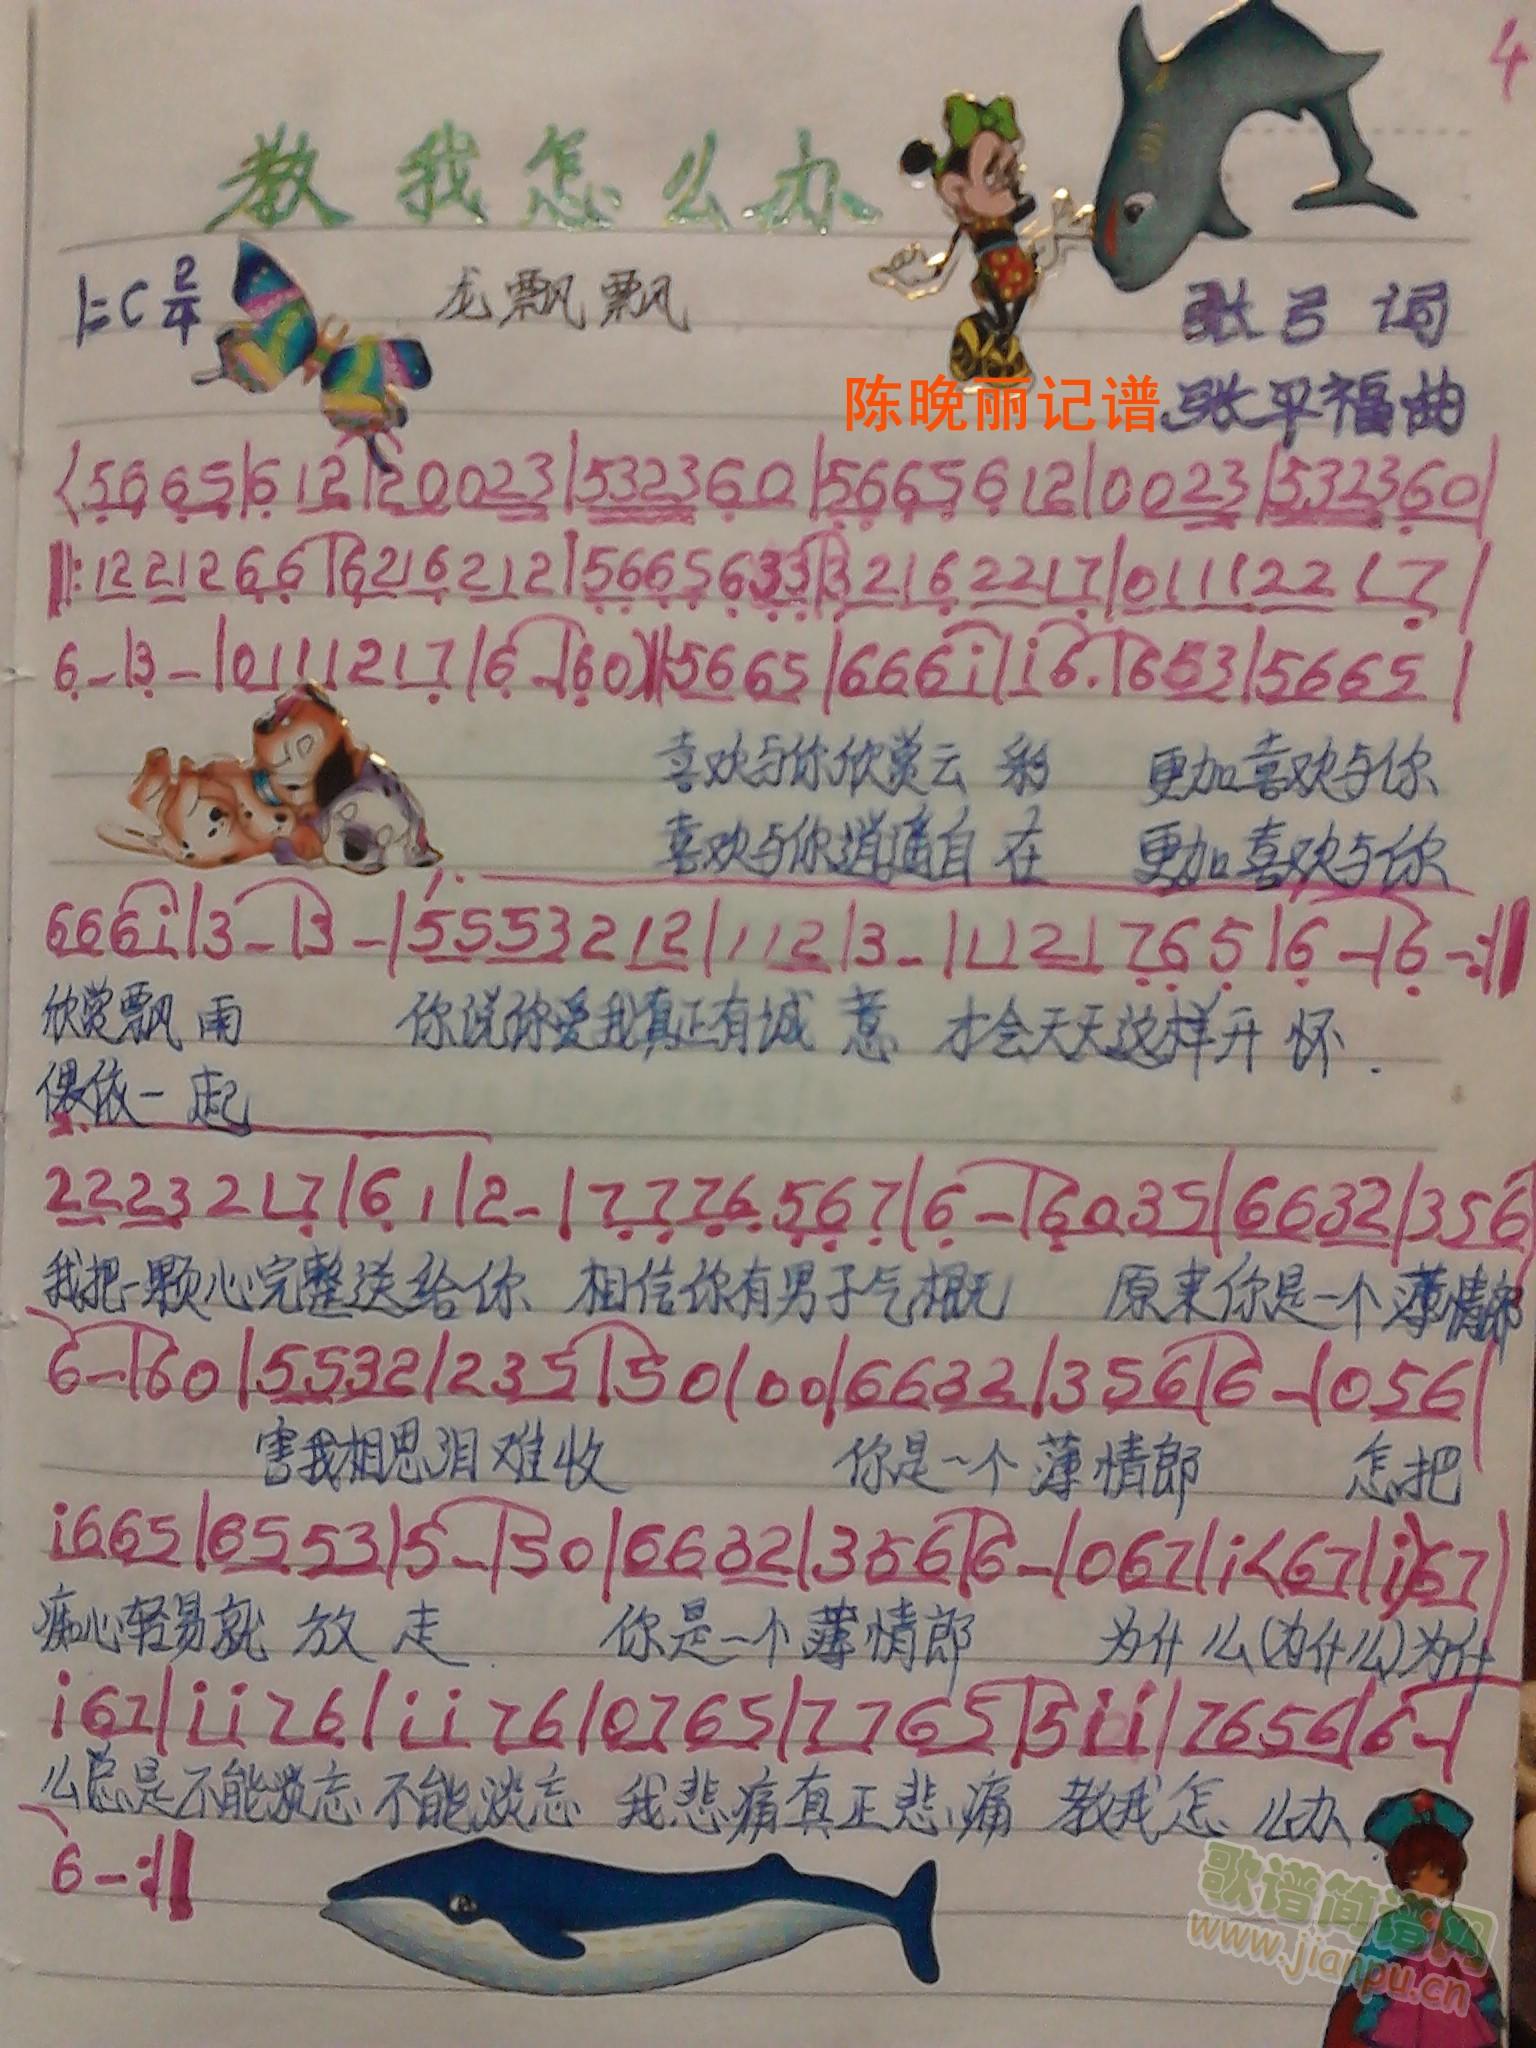 4
教我怎么办
1=C 2/4 龙飘飘 张弓 词
陈晚丽记谱 张平福曲
(5665|612|20023|532360|5665612|0023|532360|
‖:1221266|6216212|5665633|32162217|01112217|
6-|3-|0111217|6-|60)‖5665|666i|i6.|653|5665|
喜欢与你欣赏云彩 更加喜欢与你
喜欢与你逍遥自在 更加喜欢与你
666i|3-|3-|5553212|112|3-|1121765|6-|6-:‖
欣赏飘雨 你说你爱我真正有诚意 才会天天这样开怀.
偎依一起
2223217|61|2-|7776567|6-|6035|6632|356
我把一颗心完整送给你 相信你有男子气概 原来你是一个薄情郎
6-|60|5532|235|50|00|6632|356|6-|056|
害我相思泪难收 你是一个薄情郎 怎把
i665|6553|5-|50|6632|356|6-|067|i<67|i)67|
痴心轻易就放走 你是一个薄情郎 为什么(为什么)为什
i67|ii76|ii76|0765|7765|5ii|7656|6-|
么总是不能淡忘不能淡忘 我悲痛真正悲痛 教我怎么办.
6-:‖
歌谱简谱网
www.jianpu.cn